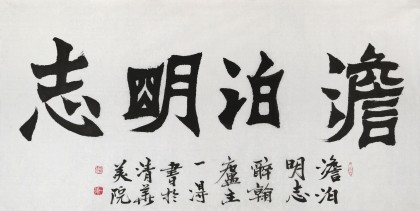 澹泊明志
澹泊
明志
醉翰
廬主
一得
書於
清華
美院